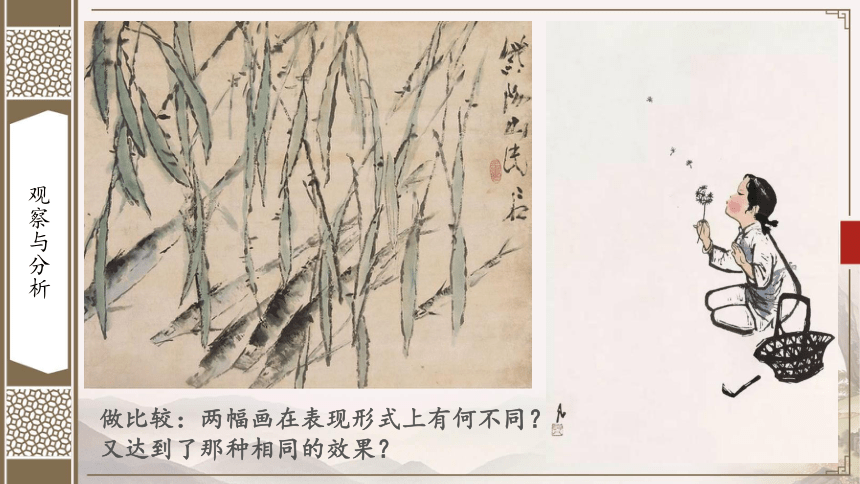 观察与分析
紫阳山民
做比较：两幅画在表现形式上有何不同？
又达到了那种相同的效果？